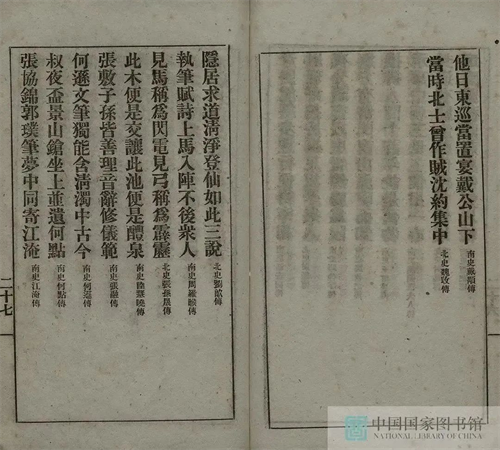 他日東巡當置宴戴公山下 南史蕭穎傳
當時北士曾作賊沈約集中 北史魏收傳
隱居求道清淨登仙如此三說 北史劉歊傳
執筆賦詩上馬入陣不後衆人 南史周羅睺傳
見馬稱為閃電見弓稱為霹靂 北史長孫晟傳
此木便是交讓此池便是醴泉 南史陸慧曉傳
張敷子孫皆善理音辭修儀範 南史張融傳
何遜文筆獨能含清濁中古今 南史何遜傳
叔夜盃景山鎗坐上並遺何點 南史何點傳
張協錦郭璞筆夢中同寄江淹 南史江淹傳
二十七
中国国家图书馆
NATIONAL LIBRARY OF CHINA